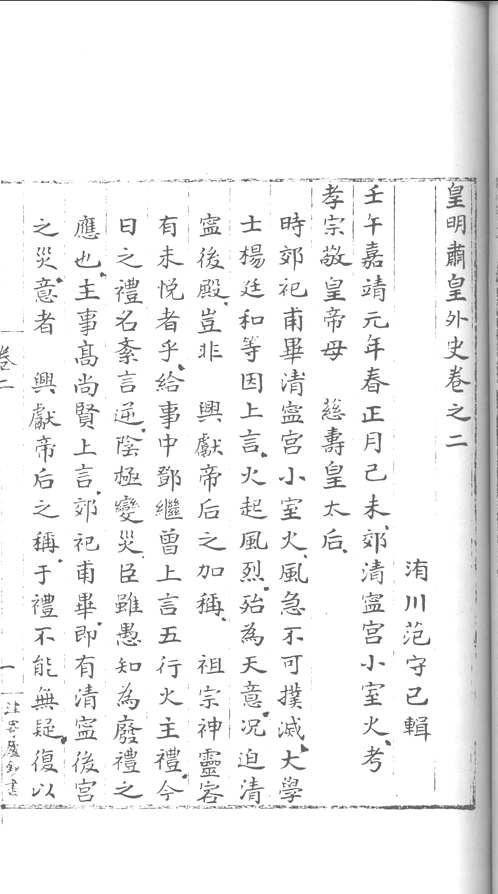 皇明肅皇外史卷之二
洧川范守己輯
壬午嘉靖元年春正月己未郊清寧宮小室火考
孝宗敬皇帝母 慈壽皇太后
時郊祀甫畢清寧宮小室火風急不可撲滅大學
士楊廷和等因上言火起風烈殆為天意况迫清
寧後殿豈非 興獻帝后之加稱 祖宗神靈容
有未悅者乎給事中鄧繼曾上言五行火主禮今
日之禮名紊言逆陰極變災臣雖愚知為廢禮之
應也主事高尚賢上言郊祀甫畢即有清寧後宮
之災意者 興獻帝后之稱于禮不能無疑復以
卷二
一
津寄廬鈔書